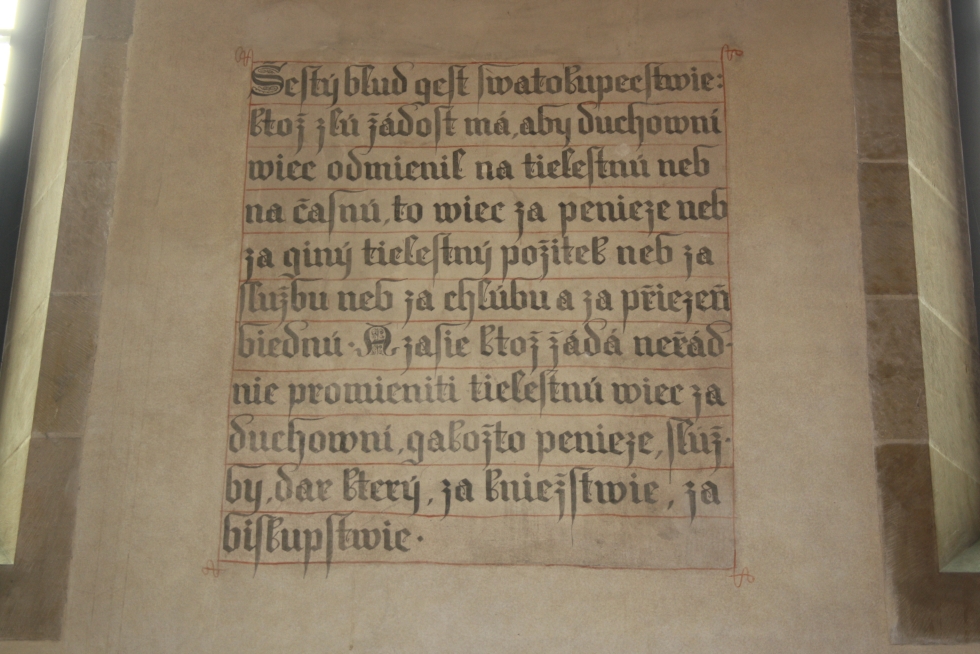 Sestý blud gest swatokupectwie:
ktož zlú žádost má, aby duchowní
wiec odmienil na tielestnú neb
na časnú, to wiec za penieze neb
za giný tielestný požitek neb za
službu neb za chlúbu a za přiezeň
biednú · A zasie ktož žádá neřád-
nie promieniti tielestnú wiec za
duchowní, gakožto penieze, služ-
by, dar který, za kniežstwie, za
biskupstwie ·